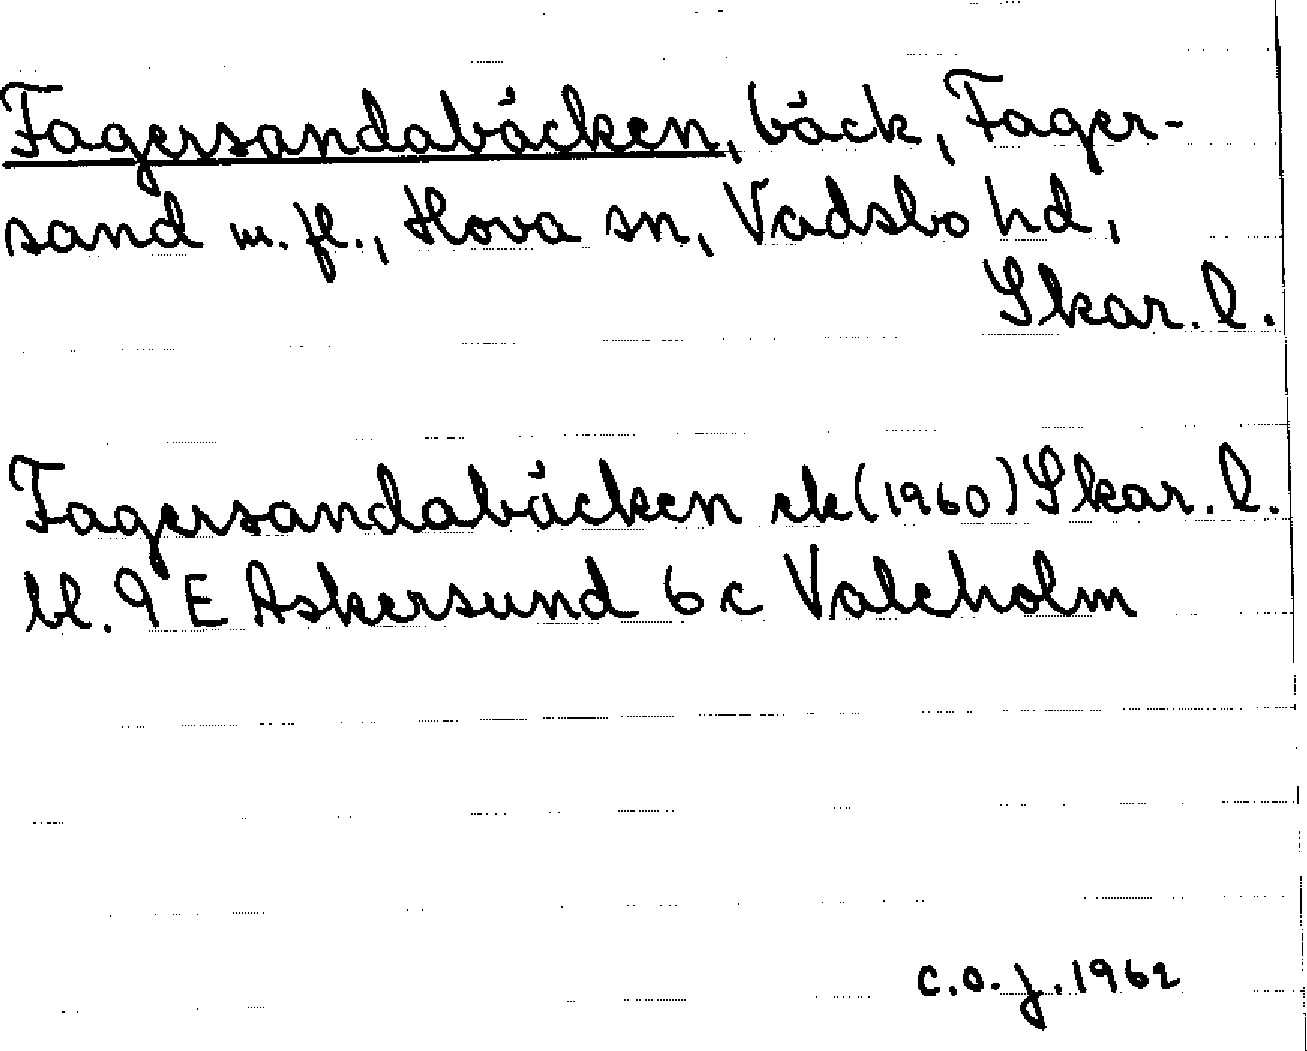 Fagersandabäcken, bäck, Fager-
sand m.fl., Hova sn, Vadsbo hd,
Skar. l.
Fagersandabäcken ek (1960) Skar. l.
bl. 9 E Askersund 6 c Valeholm
C.O.J. 1962